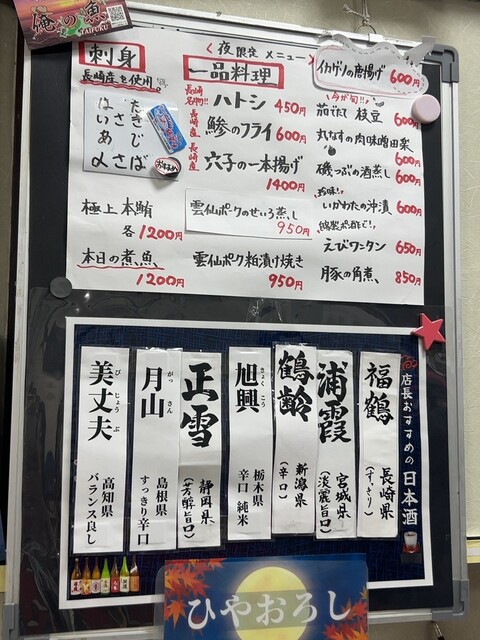 俺の魚
TAIFUKU
刺身
長崎産を使用。
はいさき
あじ
〆さば
おすすめ
極上本鮪
各1200円
本日の煮魚
1200円
〈夜限定メニュー〉
一品料理
長崎名物!! ハトシ 450円
長崎産 鯵のフライ 600円
長崎産 穴子の一本揚げ
1400円
雲仙ポークのせいろ蒸し
950円
雲仙ポーク粕漬け焼き
950円
イカゲソの唐揚げ
600円
今が旬!!
茹でたて 枝豆 600円
丸なすの肉味噌田楽
600円
磯つぶの酒蒸し 600円
珍味!
いかわたの沖漬 600円
特製ポン酢で!
えびワンタン 650円
豚の角煮 850円
店長おすすめの日本酒
福鶴
長崎県
(すっきり)
浦霞
宮城県
(淡麗旨口)
鶴齢
新潟県
(辛口)
旭興
きょくこう
栃木県
辛口 純米
正雪
静岡県
(芳醇旨口)
月山
がっさん
島根県
すっきり辛口
美丈夫
びじょうぶ
高知県
バランス良し
ひやおろし